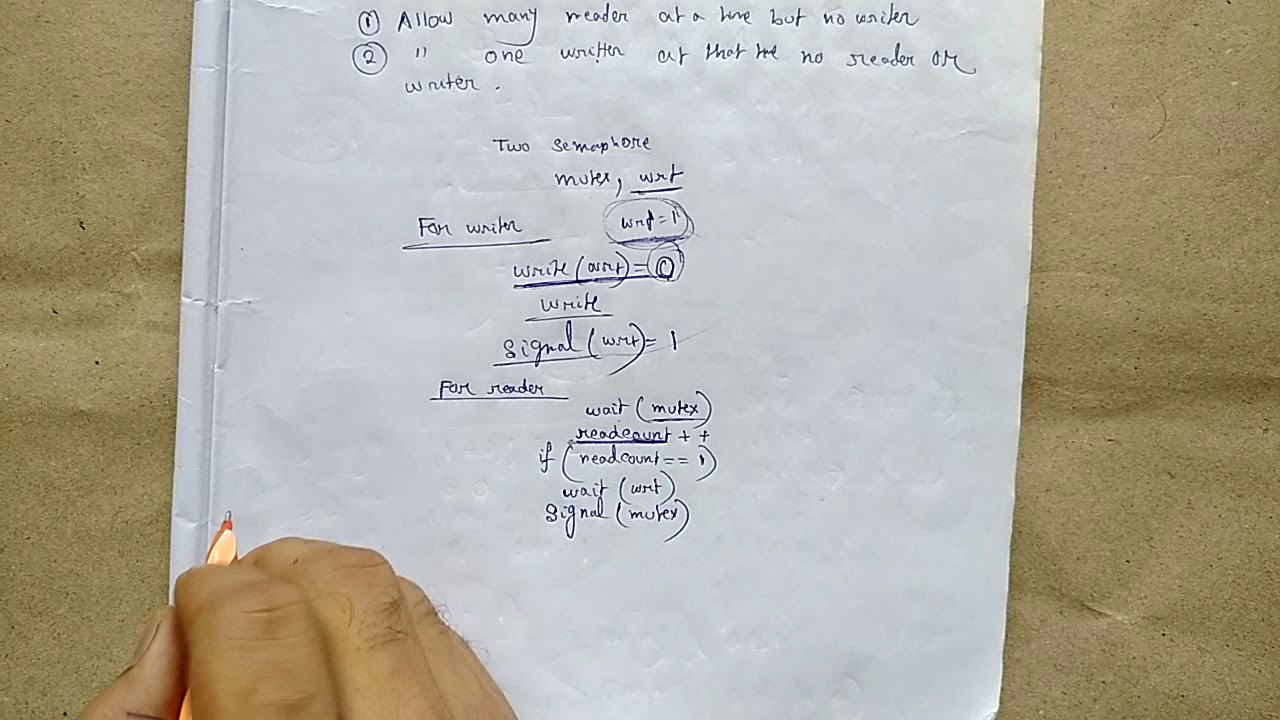 ① Allow many reader at a time but no writer
② " one writter at that time no reader or
writer .
Two semaphore
mutex, wrt
For writer wrt = 1
write (wrt) = 0
write
signal (wrt) = 1
For reader
wait (mutex)
readcount + +
if (readcount == 1)
wait (wrt)
signal (mutex)